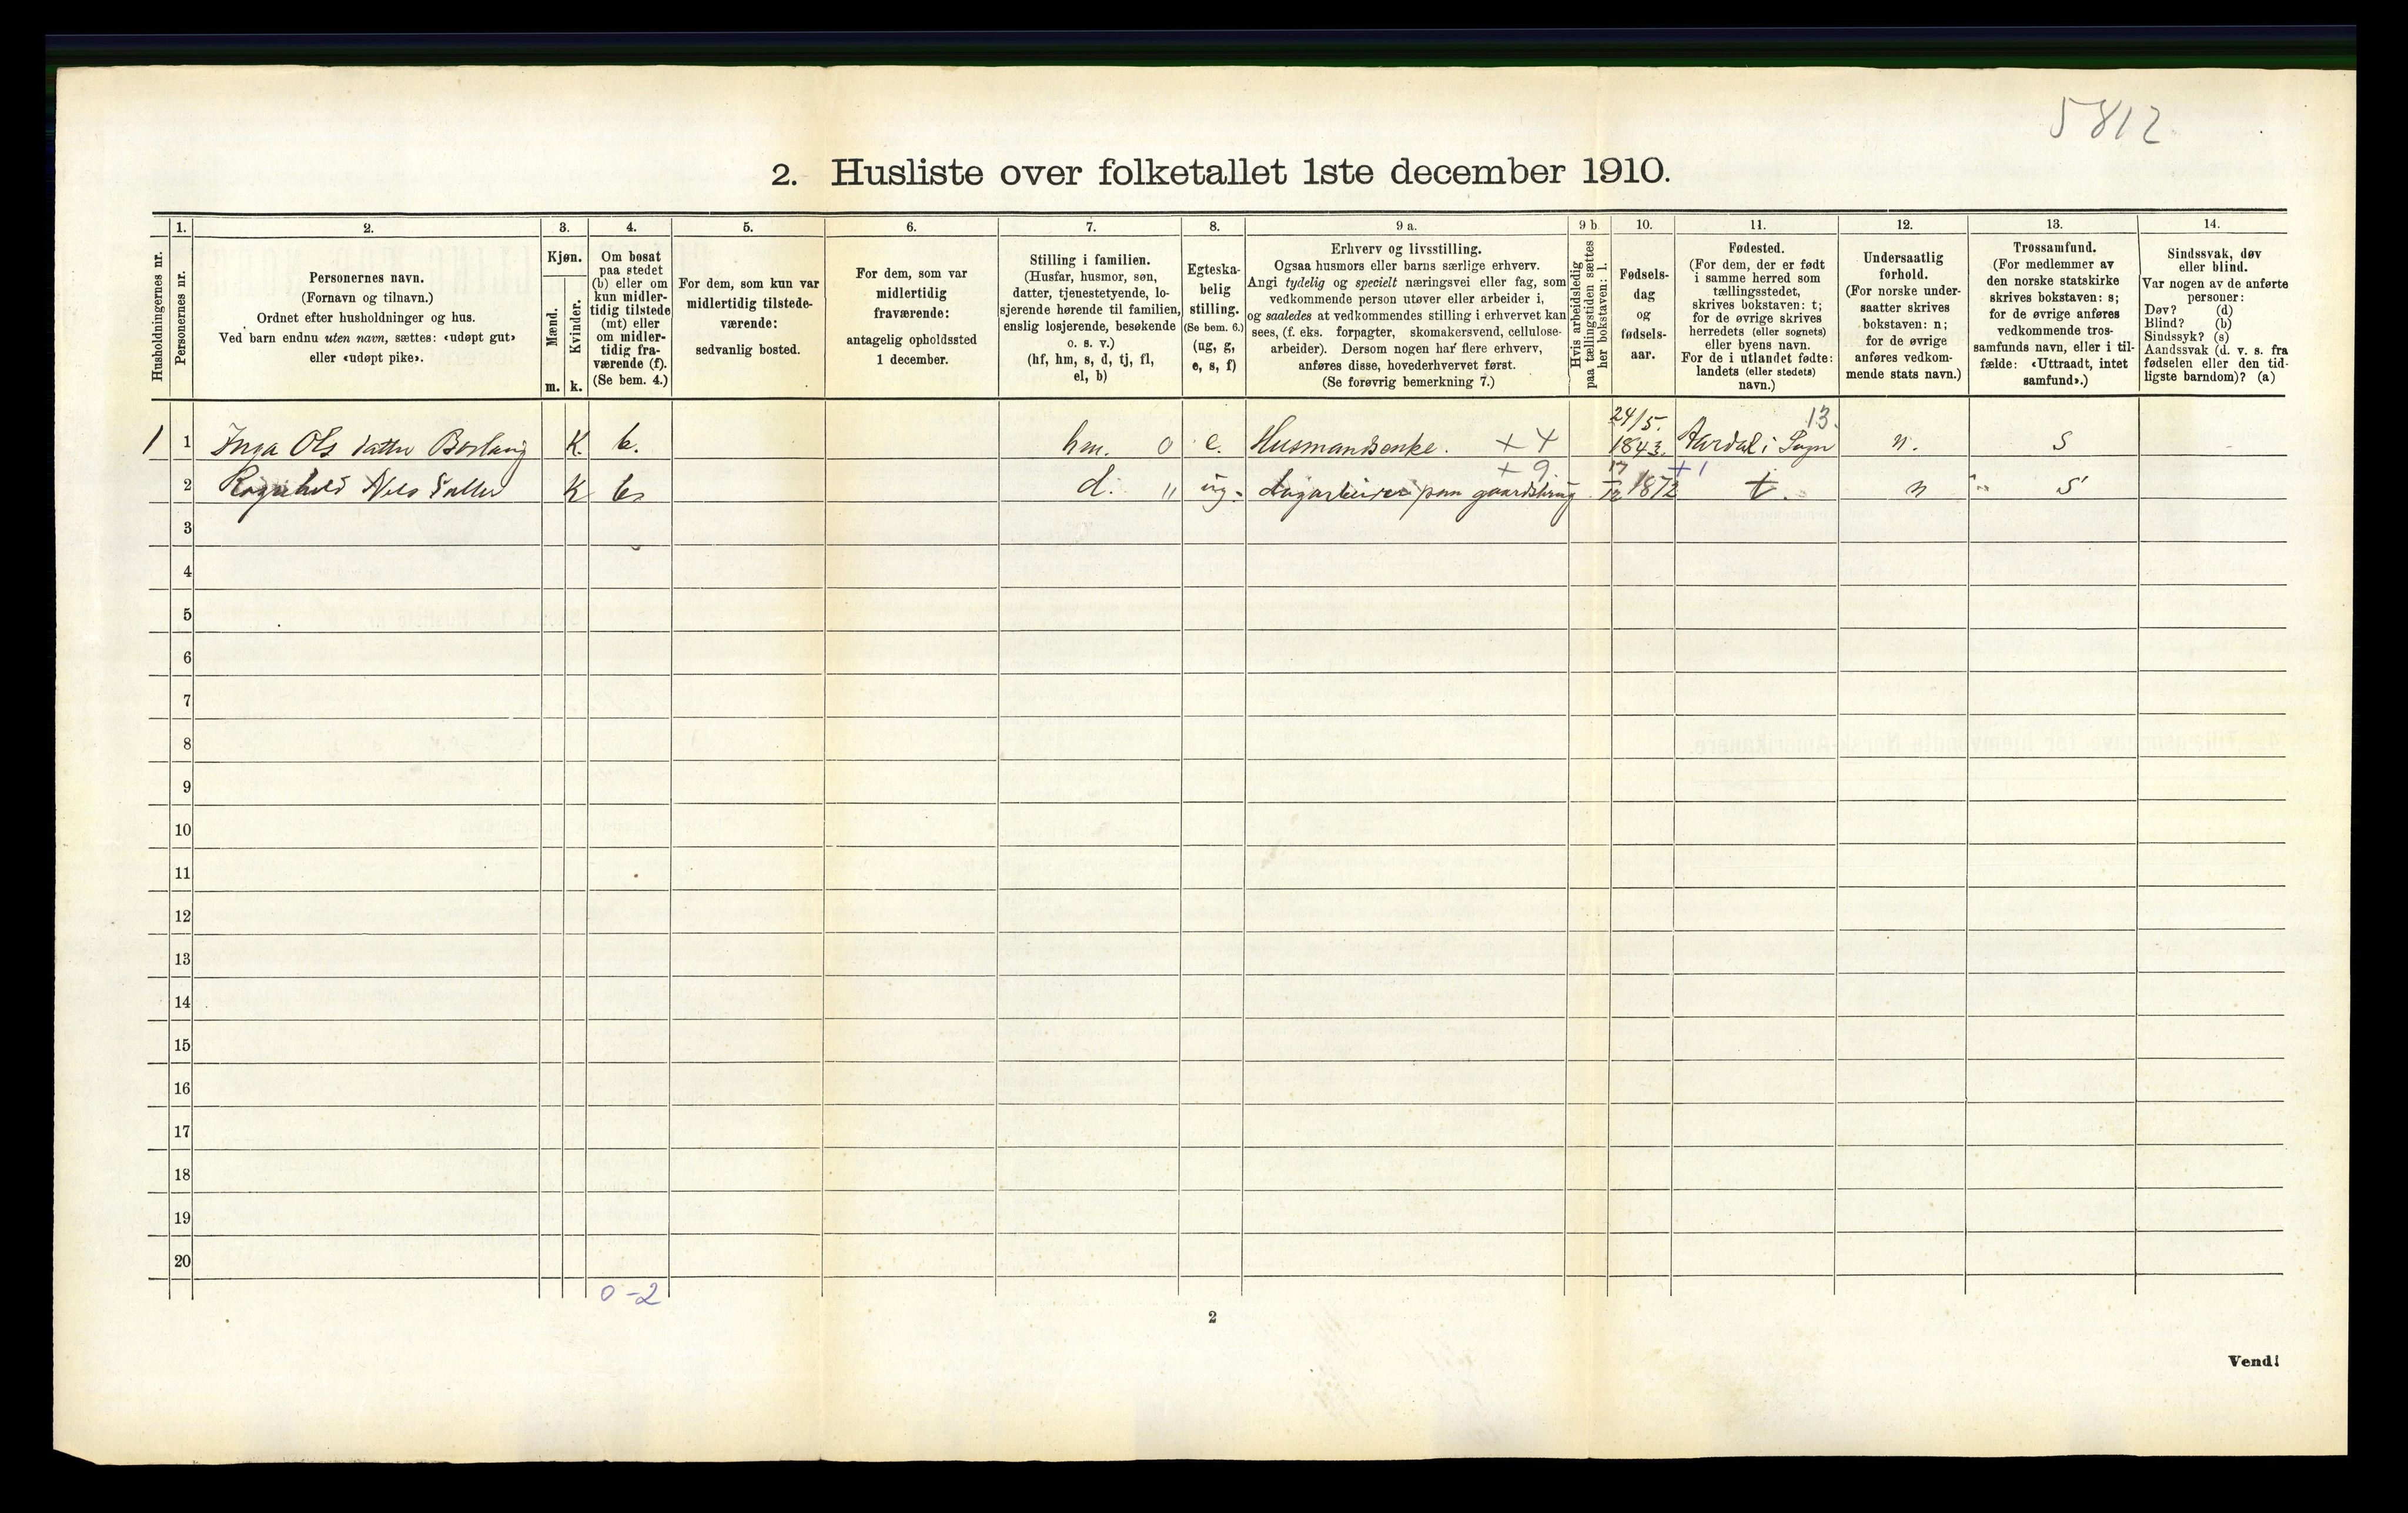 5812
2. Husliste over folketallet 1ste december 1910.
Husholdningernes nr.
1.
Personernes nr.
2.
Personernes navn.
(Fornavn og tilnavn.)
Ordnet efter husholdninger og hus.
Ved barn endnu uten navn, sættes: «udøpt gut»
eller «udøpt pike».
3.
Kjøn.
Mænd.
Kvinder.
m. k.
4.
Om bosat
paa stedet
(b) eller om
kun midler-
tidig tilstede
(mt) eller
om midler-
tidig fra-
værende (f).
(Se bem. 4.)
5.
For dem, som kun var
midlertidig tilstede-
værende:
sedvanlig bosted.
6.
For dem, som var
midlertidig
fraværende:
antagelig opholdssted
1 december.
7.
Stilling i familien.
(Husfar, husmor, søn,
datter, tjenestetyende, lo-
sjerende hørende til familien,
enslig losjerende, besøkende
o. s. v.)
(hf, hm, s, d, tj, fl,
el, b)
8.
Egteska-
belig
stilling.
(Se bem. 6.)
(ug, g,
e, s, f)
9 a.
Erhverv og livsstilling.
Ogsaa husmors eller barns særlige erhverv.
Angi tydelig og specielt næringsvei eller fag, som
vedkommende person utøver eller arbeider i,
og saaledes at vedkommendes stilling i erhvervet kan
sees, (f. eks. forpagter, skomakersvend, cellulose-
arbeider). Dersom nogen har flere erhverv,
anføres disse, hovederhvervet først.
(Se forøvrig bemerkning 7.)
9 b.
Hvis arbeidsledig
paa tællingstiden sættes
her bokstaven: l.
10.
Fødsels-
dag
og
fødsels-
aar.
11.
Fødested.
(For dem, der er født
i samme herred som
tællingsstedet,
skrives bokstaven: t;
for de øvrige skrives
herredets (eller sognets)
eller byens navn.
For de i utlandet fødte:
landets (eller stedets)
navn.)
12.
Undersaatlig
forhold.
(For norske under-
saatter skrives
bokstaven: n;
for de øvrige
anføres vedkom-
mende stats navn.)
13.
Trossamfund.
(For medlemmer av
den norske statskirke
skrives bokstaven: s;
for de øvrige anføres
vedkommende tros-
samfunds navn, eller i til-
fælde: «Uttraadt, intet
samfund».)
14.
Sindssvak, døv
eller blind.
Var nogen av de anførte
personer:
Døv? (d)
Blind? (b)
Sindssyk? (s)
Aandssvak (d. v. s. fra
fødselen eller den tid-
ligste barndom)? (a)
24/5. 13.
1 1 Inga Ols datter K. b. hm. 0 e. Husmandsenke. + 4 1843. Aardal i Sogn n. S
+ 9. 17 + 1
2 Ragnhild Nels datter K b d. " ug. dagarbeider paa gaardsbrug 12 1872 t. n S
3
4
5
6
7
8
9
10
11
12
13
14
15
16
17
18
19
20
0 - 2
2
Vend!